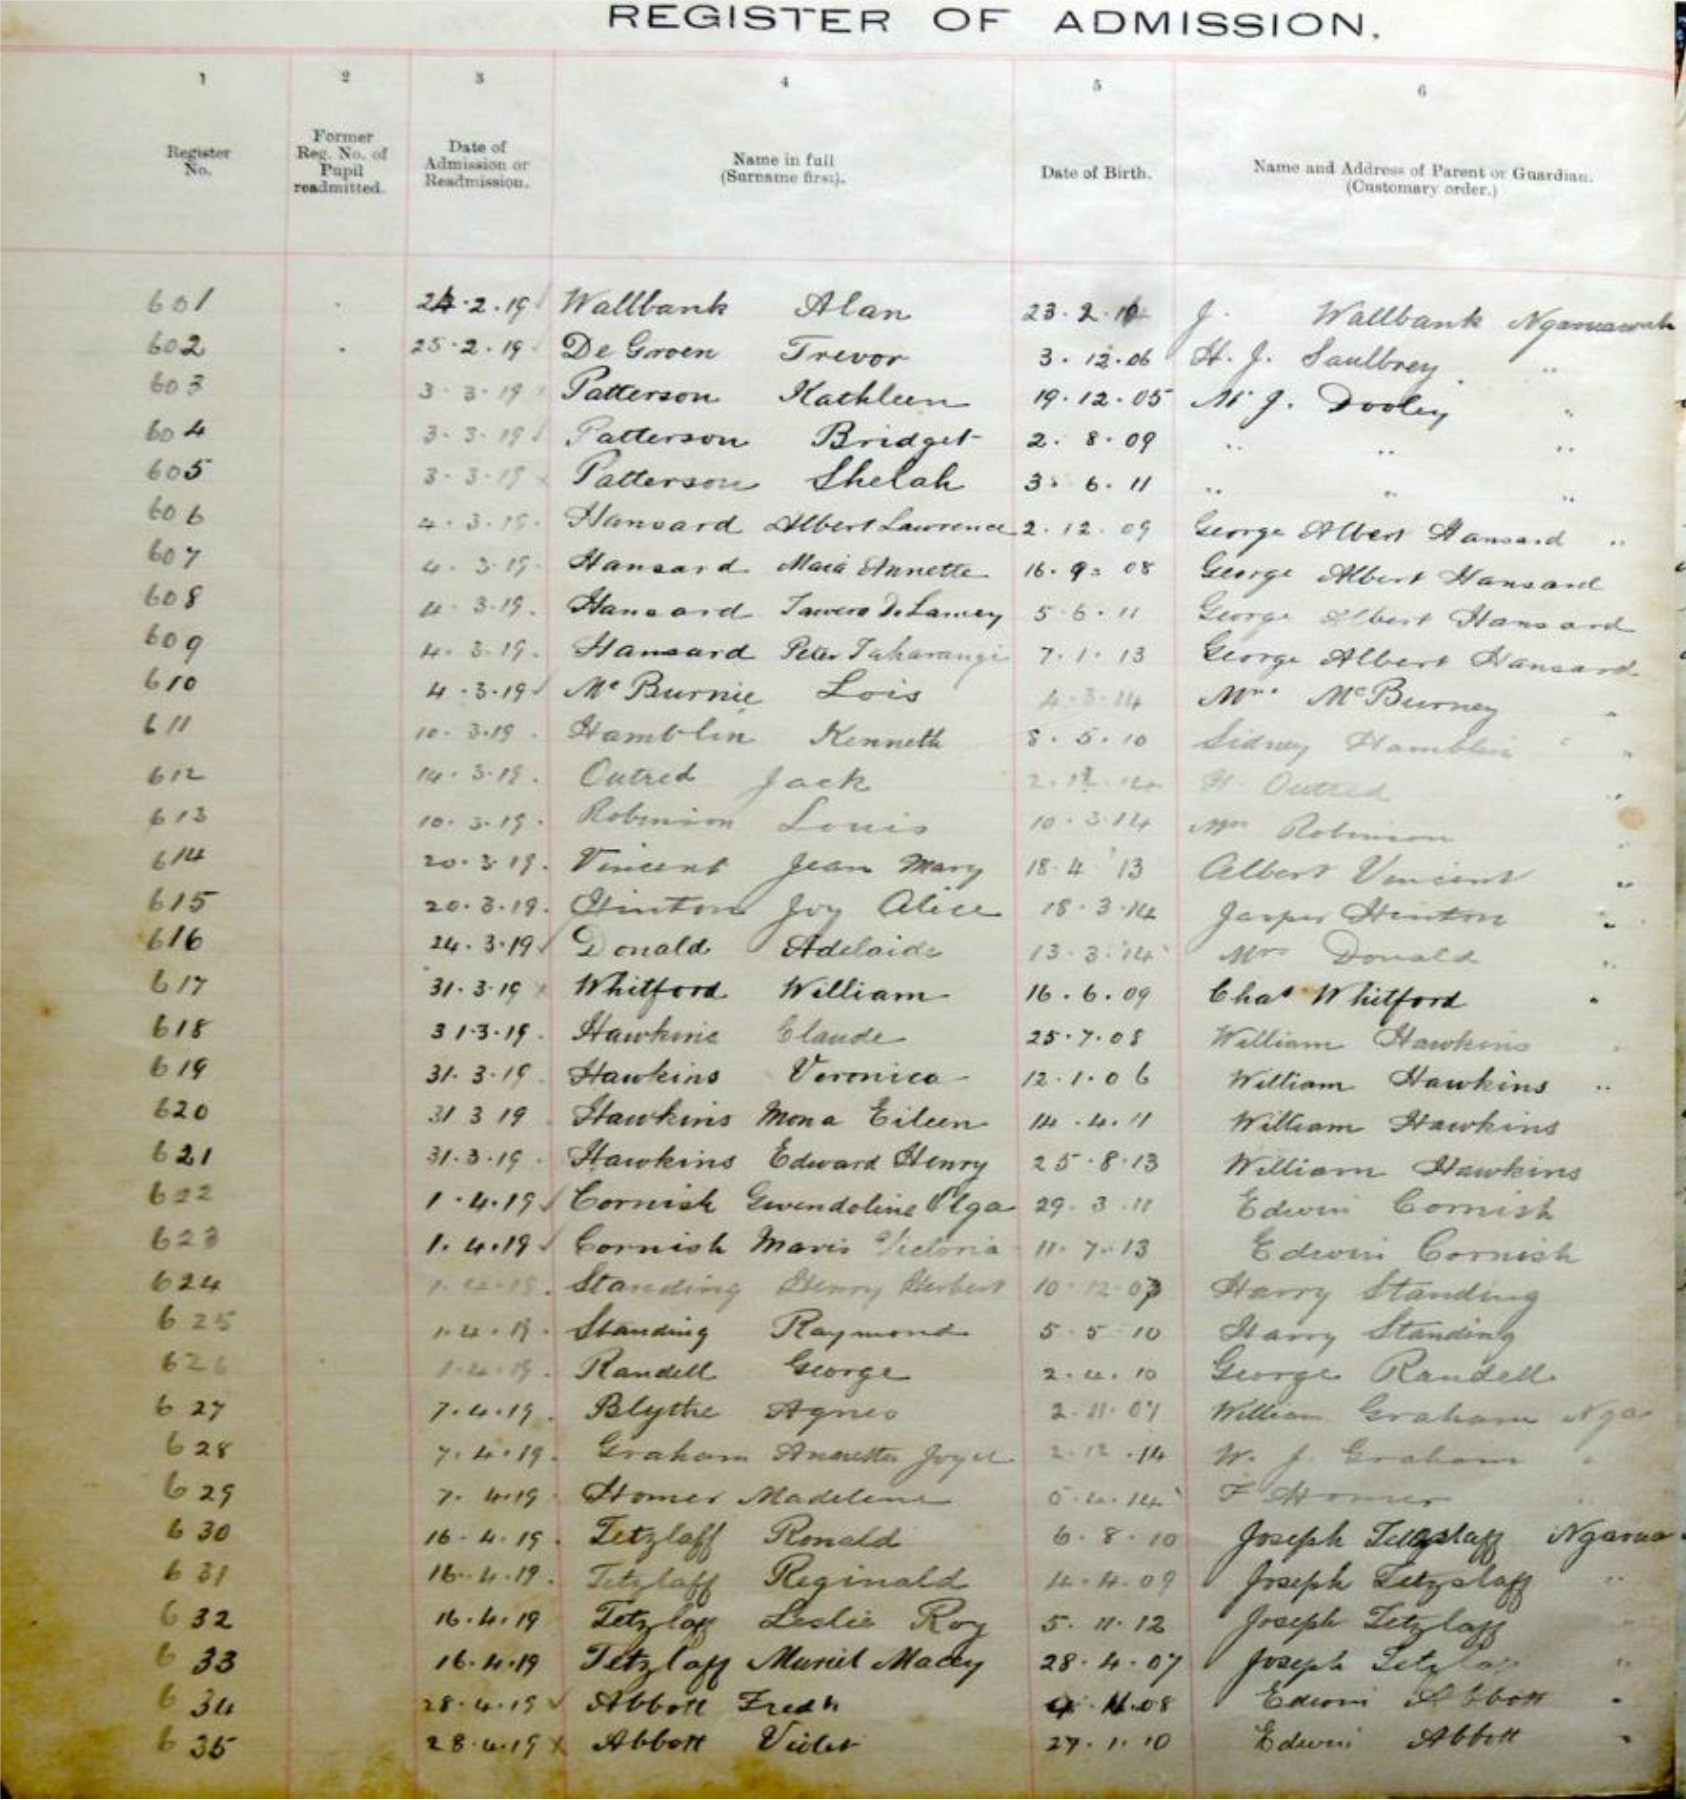 REGISTER OF ADMISSION.
1 2 3 4 5 6
Register No. Former Reg. No. of Pupil readmitted. Date of Admission or Readmission. Name in full (Surname first). Date of Birth. Name and Address of Parent or Guardian. (Customary order.)
601 24.2.19 Wallbank Alan 23.2. J. Wallbank Ngaruawah
602 25.2.19 De Groen Trevor 3.12.06 H. J. Saulbrey "
603 3.3.19 Patterson Kathleen 19.12.05 J. Dooley "
604 3.3.19 Patterson Bridget 2.8.09 " " "
605 3.3.19 Patterson Shelah 3.6.11 " " "
606 4.3.19 Hansard Albert Lawrence 2.12.09 George Albert Hansard "
607 4.3.19 Hansard Maia Annette 16.9.08 George Albert Hansard
608 4.3.19 Hansard 5.6.11 George Albert Hansard
609 4.3.19 Hansard Peter Taharangi 7.1.13 George Albert Hansard
610 4.3.19 McBurnie Lois 4.3.14 McBurney "
611 10.3.19 Hamblin Kenneth 8.5.10 Sidney Hamblin "
612 14.3.19 Outred Jack H. Outred "
613 10.3.19 Robinson Louis 10.3.14 Mrs Robinson "
614 20.3.19 Vincent Jean Mary 18.4.13 Albert Vincent "
615 20.3.19 Hinton Joy Alice 18.3.14 Jasper Hinton "
616 24.3.19 Donald Adelaide 13.3.14 Mrs Donald "
617 31.3.19 Whitford William 16.6.09 Chas Whitford "
618 31.3.19 Hawkins Claude 25.7.08 William Hawkins "
619 31.3.19 Hawkins Veronica 12.1.06 William Hawkins "
620 31 3 19 Hawkins Mona Eileen 14.4.11 William Hawkins
621 31.3.19 Hawkins Edward Henry 25.8.13 William Hawkins
622 1.4.19 Cornish Gwendoline Olga 29.3.11 Edwin Cornish
623 1.4.19 Cornish Mavis Victoria 11.7.13 Edwin Cornish
624 1.4.19 Standing Henry Herbert 10.12.07 Harry Standing
625 1.4.19 Standing Raymond 5.5.10 Harry Standing
626 1.4.19 Randell George 2.4.10 George Randell
627 7.4.19 Blythe Agnes 2.11.07 William Graham Nga
628 7.4.19 Graham Annetta Joyce 2.12.14 W. J. Graham "
629 7.4.19 Homer Madeline 5.4.14 F Homer
630 16.4.19 Tetzlaff Ronald 6.8.10 Joseph Ngarua
631 16.4.19 Tetzlaff Reginald 4.4.09 Joseph Tetzslaff "
632 16.4.19 Tetzlaff Leslie Roy 5.11.12 Joseph Tetzlaff "
633 16.4.19 Tetzlaff Muriel Macey 28.4.07 Joseph Tetzlaff "
634 28.4.19 Abbott Fredk .08 Edwin Abbott "
635 28.4.19 Abbott Violet 27.1.10 Edwin Abbott "